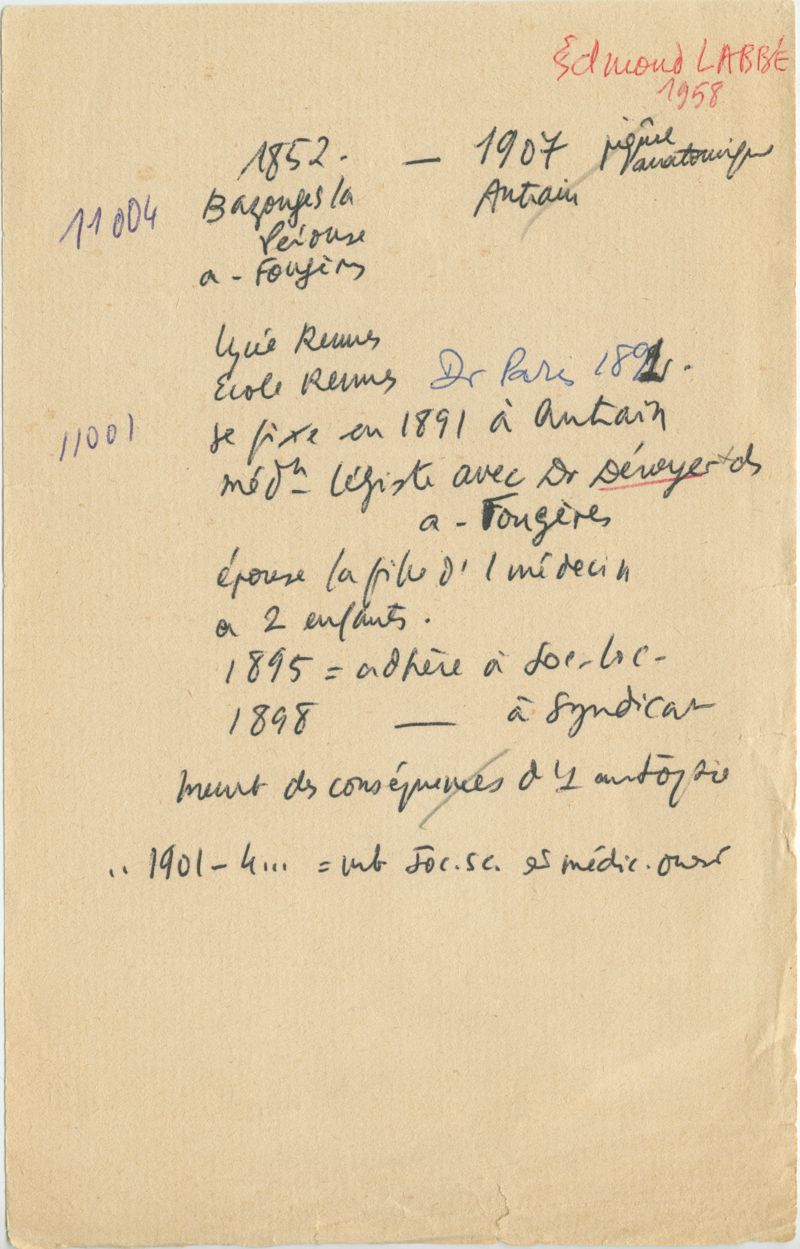 Edmond LABBÉ
1958
1852. — 1907 piqûre
anatomique
11004 Bazouges la Antrain
Pérouse
a - Fougères
lycée Rennes
École Rennes Dr Paris 189
11001 se fixe en 1891 à Antrain
médn légiste avec Dr Déroyer ds
a - Fougères
épouse la fille d' 1 médecin
a 2 enfants.
1895 = adhère à Soc. loc -
1898 — à Syndicat
meurt des conséquences d'1 autopsie
.. 1901-4... = mb Soc. sc. et médic. ouest